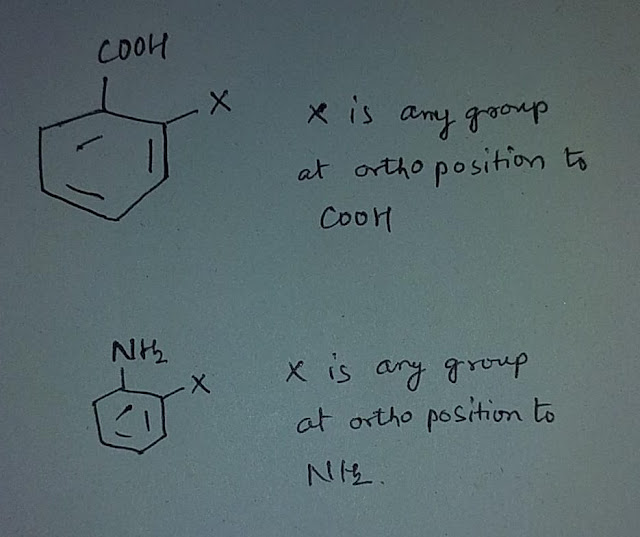 COOH
X
X is any group
at ortho position to
COOH
NH2
X
X is any group
at ortho position to
NH2.